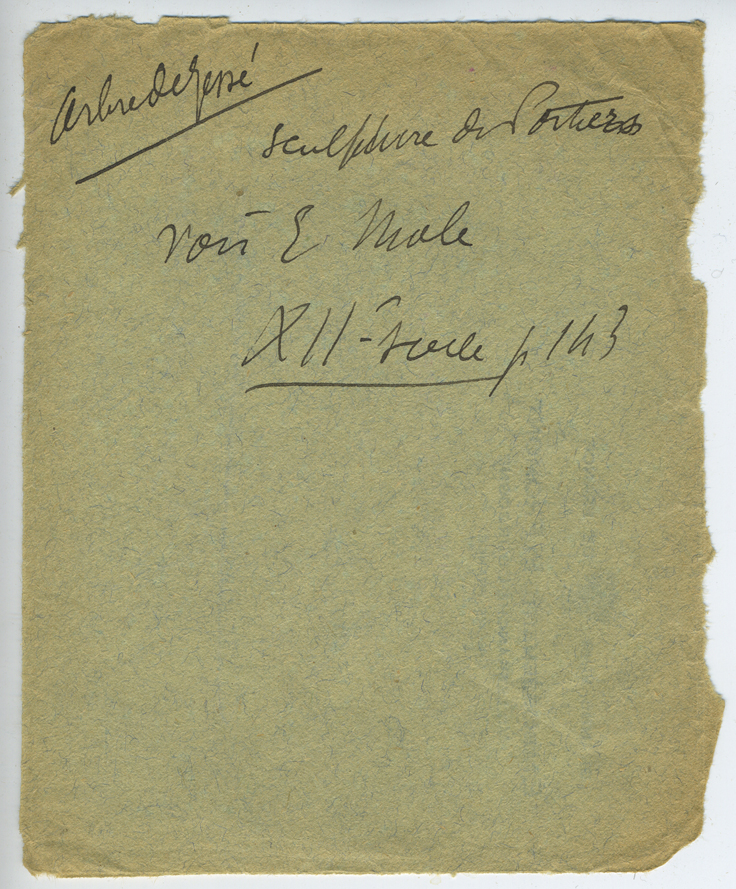 Arbre de Jessé
sculpture de Poitiers
voir E. Male
XIIe siecle p 143